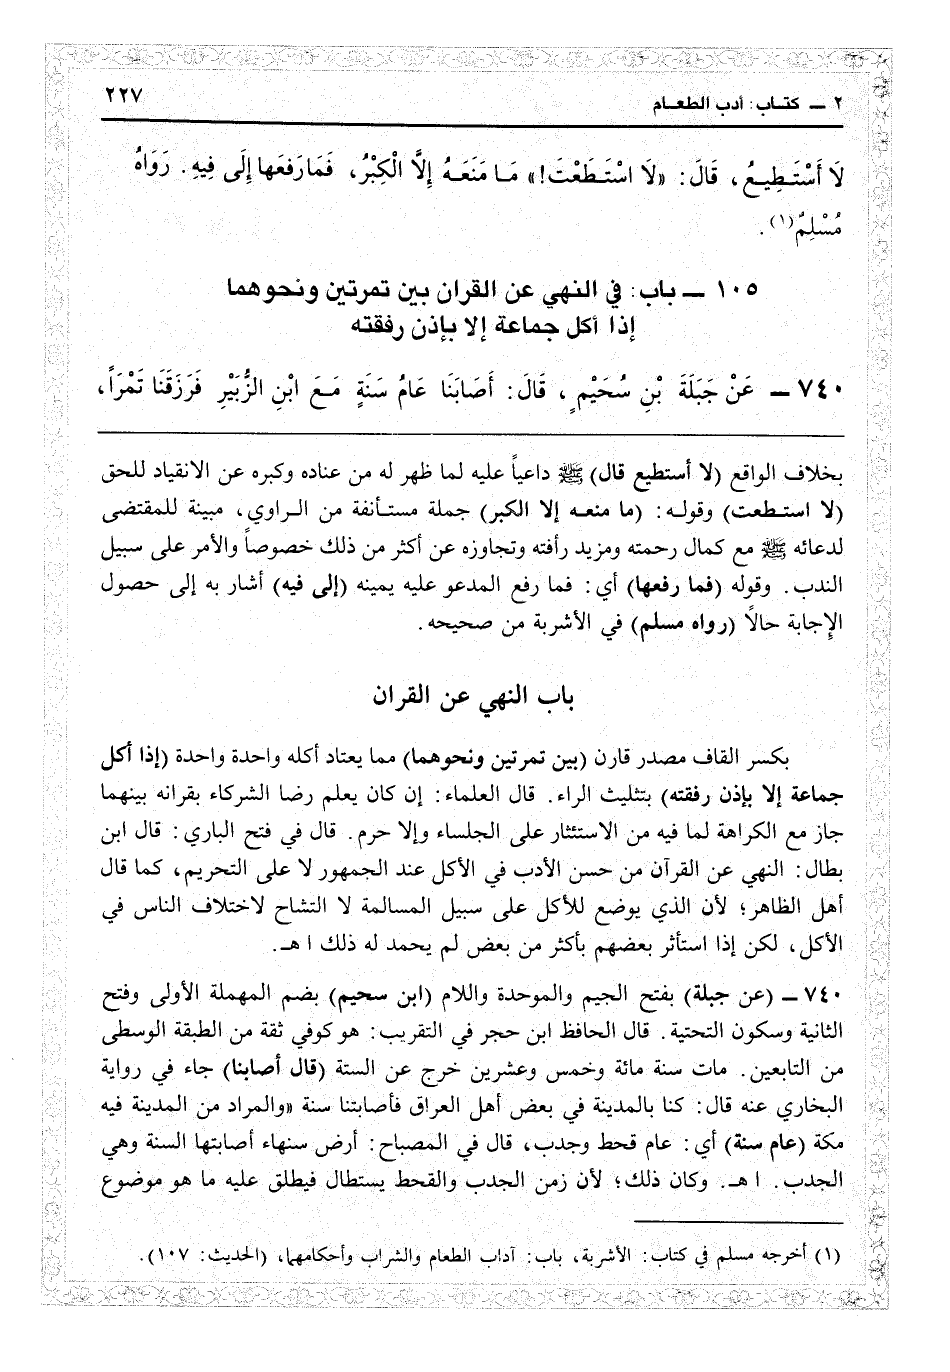 ٢ ـ كتاب: أدب الطعام
٢٢٧
لَا أَسْتَطِيعُ، قَالَ: «لَا اسْتَطَعْتَ!» مَا مَنَعَهُ إِلَّا الْكِبْرُ، فَمَا رَفَعَها إِلَى فِيهِ. رَوَاهُ
مُسْلِمٌ(١).
١٠٥ ـ باب: في النهي عن القران بين تمرتين ونحوهما
إذا أكل جماعة إلا بإذن رفقته
٧٤٠ ـ عَنْ جَبَلَةَ بْنِ سُحَيْمٍ، قَالَ: أَصَابَنَا عَامُ سَنَةٍ مَعَ ابْنِ الزُّبَيْرِ فَرَزَقَنَا تَمْرَاً،
بخلاف الواقع (لا أستطيع قال) ﷺ داعياً عليه لما ظهر له من عناده وكبره عن الانقياد للحق
(لا استطعت) وقوله: (ما منعه إلا الكبر) جملة مستأنفة من الراوي، مبينة للمقتضى
لدعائه ﷺ مع كمال رحمته ومزيد رأفته وتجاوزه عن أكثر من ذلك خصوصاً والأمر على سبيل
الندب. وقوله (فما رفعها) أي: فما رفع المدعو عليه يمينه (إلى فيه) أشار به إلى حصول
الإِجابة حالاً (رواه مسلم) في الأشربة من صحيحه.
باب النهي عن القران
بكسر القاف مصدر قارن (بين تمرتين ونحوهما) مما يعتاد أكله واحدة واحدة (إذا أكل
جماعة إلا بإذن رفقته) بتثليث الراء. قال العلماء: إن كان يعلم رضا الشركاء بقرانه بينهما
جاز مع الكراهة لما فيه من الاستئثار على الجلساء وإلا حرم. قال في فتح الباري: قال ابن
بطال: النهي عن القرآن من حسن الأدب في الأكل عند الجمهور لا على التحريم، كما قال
أهل الظاهر؛ لأن الذي يوضع للأكل على سبيل المسالمة لا التشاح لاختلاف الناس في
الأكل، لكن إذا استأثر بعضهم بأكثر من بعض لم يحمد له ذلك ا هـ.
٧٤٠ ـ (عن جبلة) بفتح الجيم والموحدة واللام (ابن سحيم) بضم المهملة الأولى وفتح
الثانية وسكون التحتية. قال الحافظ ابن حجر في التقريب: هو كوفي ثقة من الطبقة الوسطى
من التابعين. مات سنة مائة وخمس وعشرين خرج عن الستة (قال أصابنا) جاء في رواية
البخاري عنه قال: كنا بالمدينة في بعض أهل العراق فأصابتنا سنة «والمراد من المدينة فيه
مكة (عام سنة) أي: عام قحط وجدب، قال في المصباح: أرض سنهاء أصابتها السنة وهي
الجدب. ا هـ. وكان ذلك؛ لأن زمن الجدب والقحط يستطال فيطلق عليه ما هو موضوع
(١) أخرجه مسلم في كتاب: الأشربة، باب: آداب الطعام والشراب وأحكامهما، (الحديث: ١٠٧).